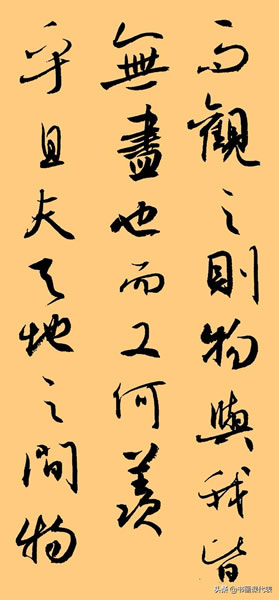 而觀之則物與我皆
無盡也而又何羨
乎且夫天地之間物
头条@书画课代表